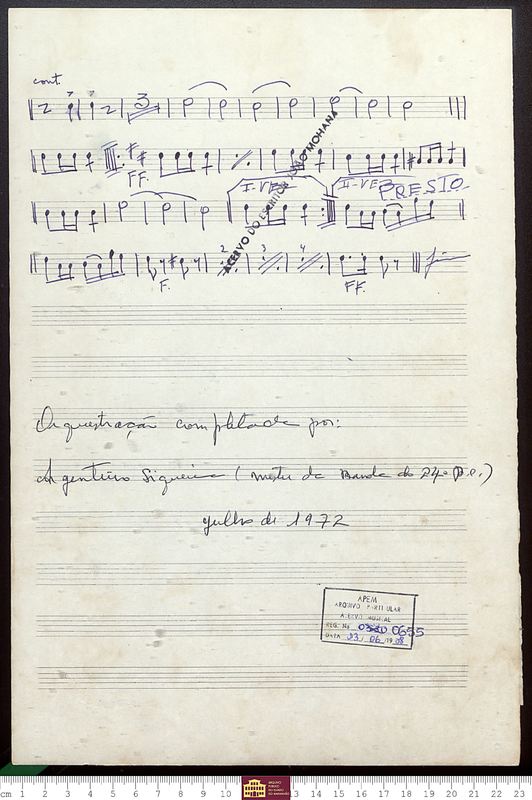 cont.
3
FF.
I-VEZ II-VEZ PRESTO
2 3 4
F. FF.
Fim
ACERVO DO ESCRITOR JOÃO MOHANA
Orquestração completada por:
Argentino Siqueira (Mestre da Banda do 24º B.C.)
Julho de 1972
APEM
ARQUIVO PARTICULAR
ACERVO MUSICAL
REG. Nº 0655
DATA 23/06/1998
cm 1 2 3 4 5 6 7 8 9 10 13 14 15 16 17 18 19 20 21 22 23